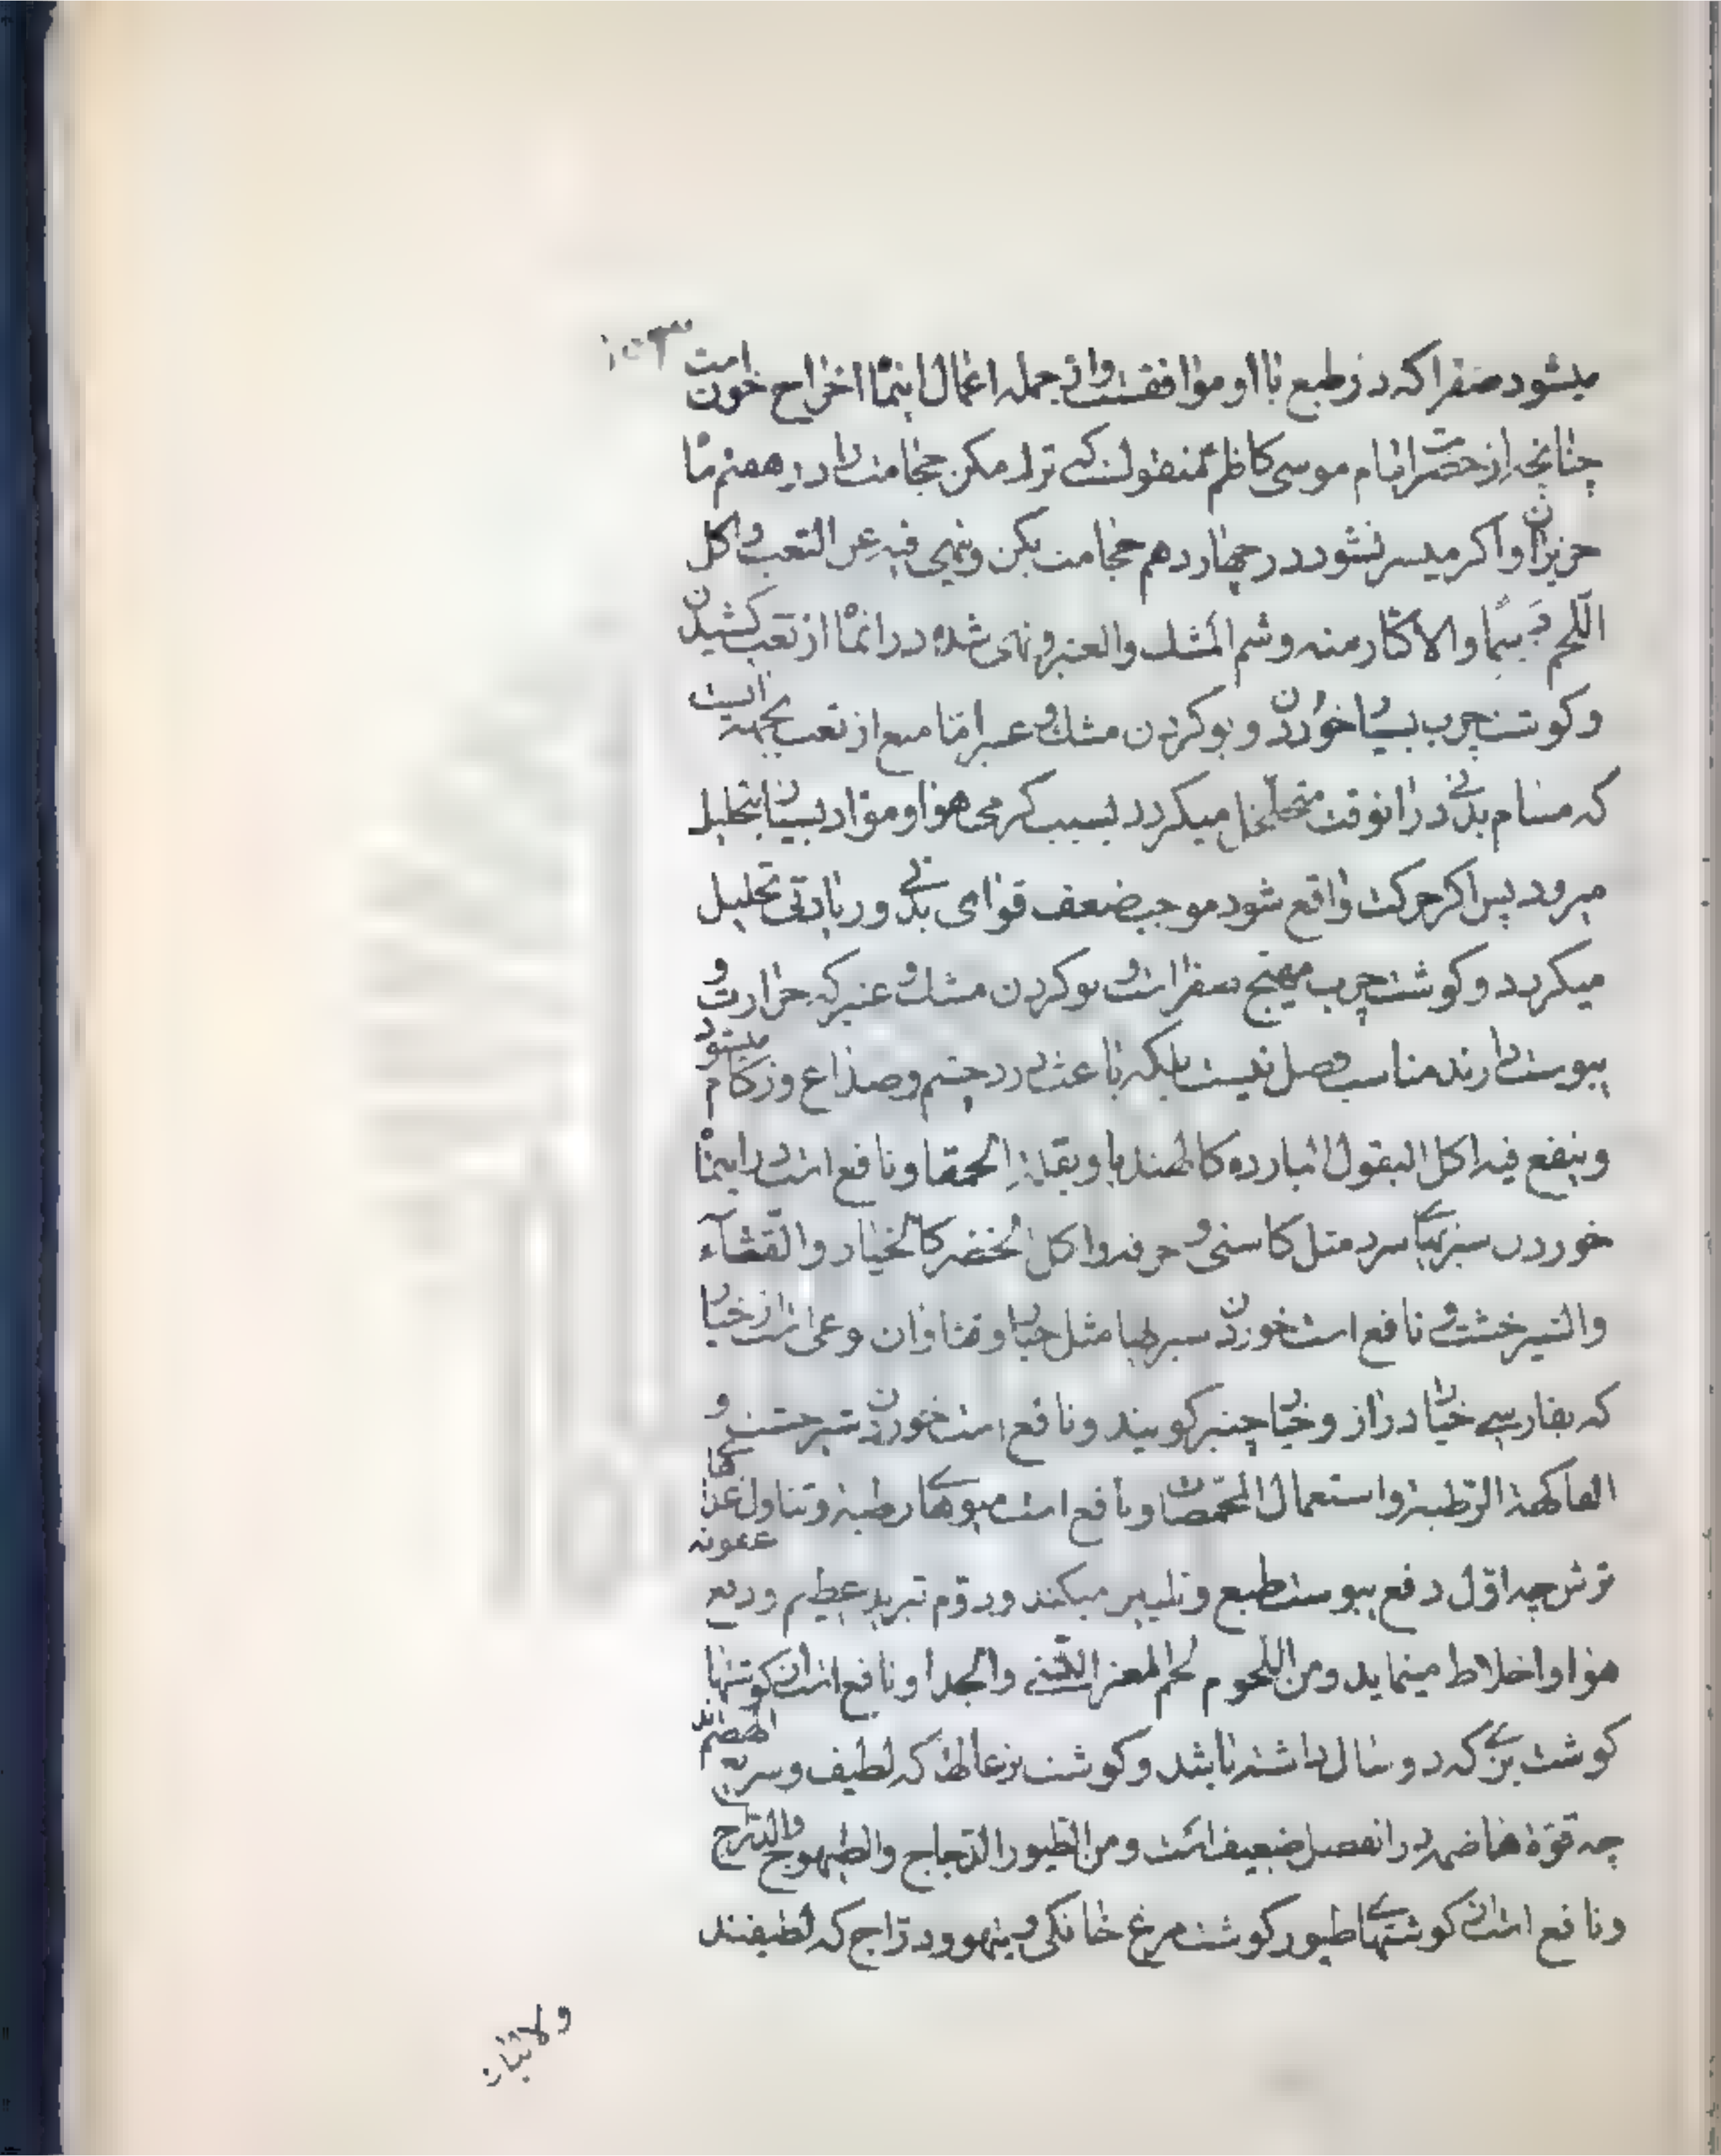 ۱۵۳
میشود صفرا که در طبع با او موافقست و از جمله اعمال اینماه اخراج خون است
چنانچه از حضرت امام موسی کاظم منقولست که ترک مکن حجامت را در هفتم ماه
حزیران و اگر میسر نشود در چهاردهم حجامت بکن وینهی فیه عن التعب و اکل
اللحم دسما والاکثار منه وشم المشک والعنبر و نهی شده در انماه از تعب کشیدن
و کوشت چرب بسیار خوردن و بو کردن مشک و عنبر اما منع از تعب بجهة انیست
که مسام بدنی در انوقت متخلخل میکردد بسبب کرمی هوا و مواد بسیار بتحلیل
میرود پس اکر حرکت واقع شود موجب ضعف قوای بدنی و زیادتی تحلیل
میکردد و کوشت چرب مهیج صفرا است و بو کردن مشک و عنبر که حرارت و
یبوست دارند مناسب فصل نیست بلکه باعث درد چشم و صداع و زکام میشود
وینفع فیه اکل البقول البارده کالهندبا وبقلة الحمقا و نافع است در اینماه
خوردن سبزیهای سرد مثل کاسنی و خرفه واکل الخضر کالخیار والقثآء
والشیرخشت و نافع است خوردن سبزیها مثل خیار و قثا و ان نوعی است از خیار
که بفارسی خیار دراز و خیار چنبر کویند و نافع است خوردن شیرخشت و
الفاکهة الرطبة واستعمال المحمضات و نافع است میوهای رطبه و تناول غذاهای
ترش چه اول دفع یبوست طبع و تلیین میکند و دوم تبرید عظیم و دفع عفونه
هوا و اخلاط مینماید ومن اللحوم لحم المعز الثنی والجدا و نافع است از کوشتها
کوشت بزی که دو سال داشته باشد و کوشت بزغاله که لطیف و سریع الهضم اند
چه قوة هاضمه در انفصل ضعیف است ومن الطیور الدجاج والطیهوج والدراج
و نافع است از کوشتهای طیور کوشت مرغ خانکی و تیهو و دراج که لطیفند